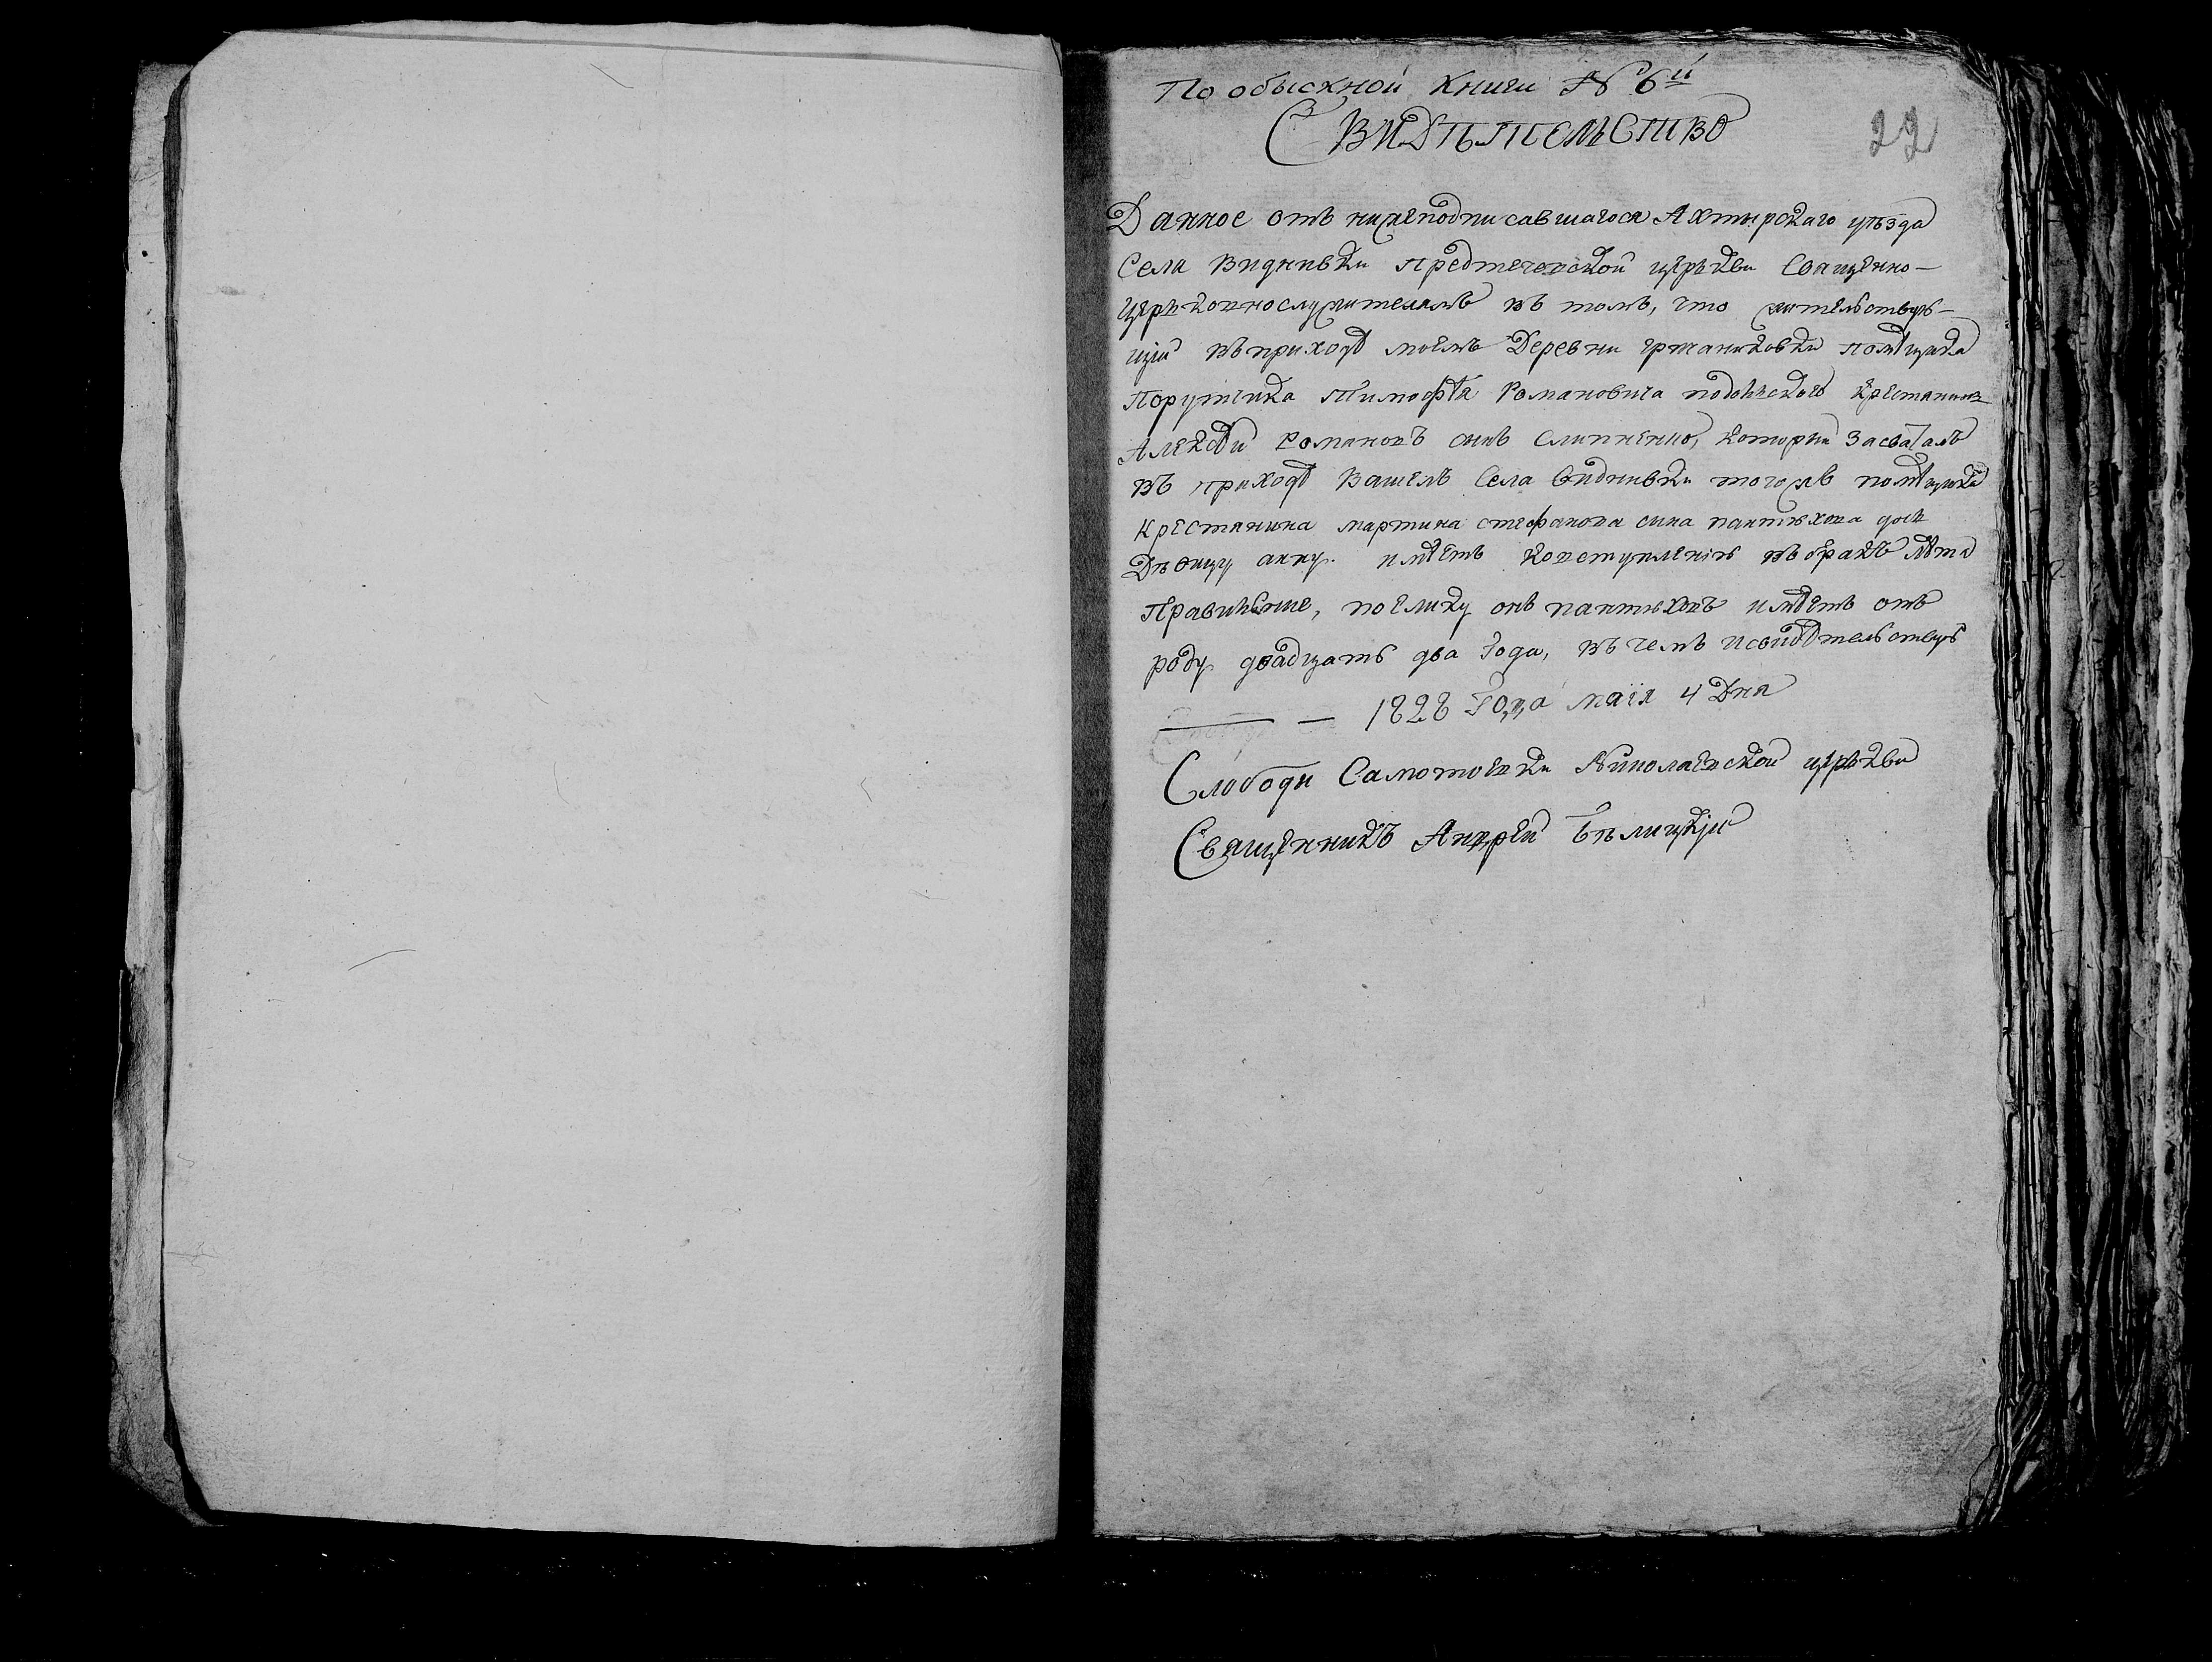 По обыскной книги № 6й
22
Свидѣтельство
Данное отъ нижеподписавшагося Ахтырскаго уѣзда
Села Виднивки Предтечевской церькви Священно-
церьковнослужителямъ въ томъ, что жительствую-
щій въ приходѣ моемъ Деревни помѣщика
Порутчика Тимофѣя Романовича крестянинъ
Алексѣй Романовъ синъ который засваталъ
въ приходѣ Вашемъ Села Виднивки тогожъ помѣщика
крестянина мартина стефанова сина пантюхова дочь
Дѣвицу анну. имѣетъ ковступленію въ бракъ лѣта
Правильние, поелику онъ имѣетъ отъ
роду двадцать два года, въ чемъ и свидѣтельствую
1828 года маія 4 Дня
Слободи Самотоевки Николаевской церькви
Священникъ Андрей Бѣлицкій